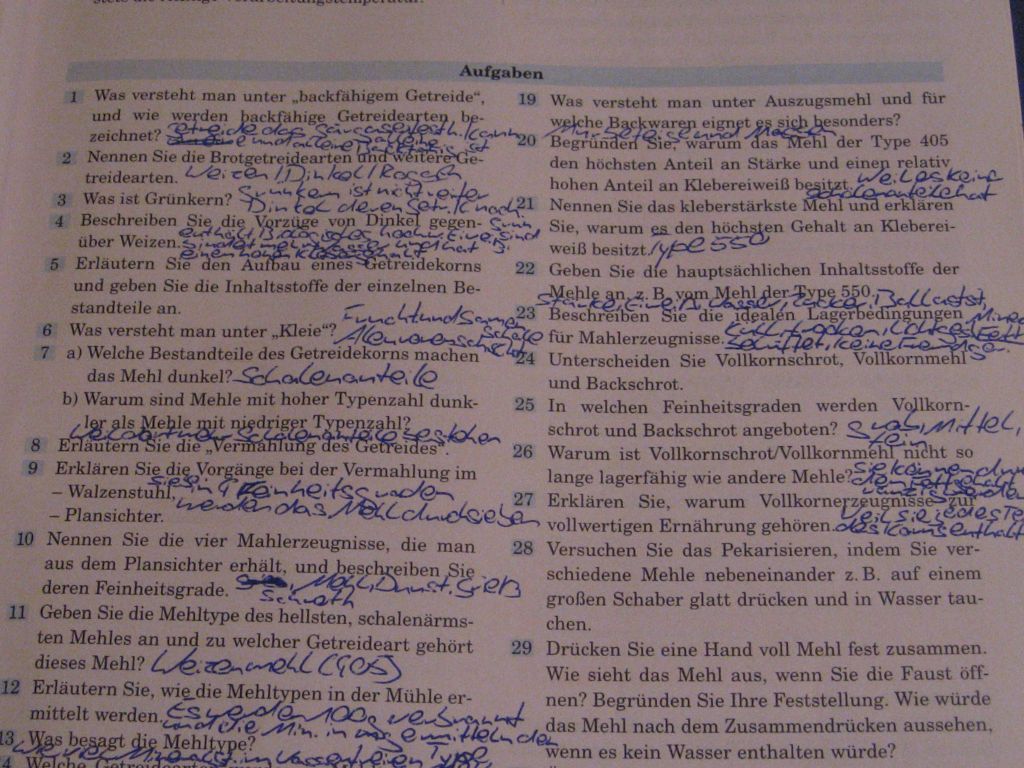 stets die richtige Verarbeitungstemperatur.
Aufgaben
1 Was versteht man unter „backfähigem Getreide“,
und wie werden backfähige Getreidearten be-
zeichnet?
2 Nennen Sie die Brotgetreidearten und weitere Ge-
treidearten. Weizen / Dinkel / Roggen
3 Was ist Grünkern?
4 Beschreiben Sie die Vorzüge von Dinkel gegen-
über Weizen.
5 Erläutern Sie den Aufbau eines Getreidekorns
und geben Sie die Inhaltsstoffe der einzelnen Be-
standteile an.
Frucht und Samen
6 Was versteht man unter „Kleie“? schale
7 a) Welche Bestandteile des Getreidekorns machen
das Mehl dunkel? Schalenanteile
b) Warum sind Mehle mit hoher Typenzahl dunk-
ler als Mehle mit niedriger Typenzahl?
mehr Schalenanteile bestehen
8 Erläutern Sie die „Vermahlung des Getreides“.
9 Erklären Sie die Vorgänge bei der Vermahlung im
– Walzenstuhl, in 4 Feinheitsgraden
– Plansichter. werden das Mehl durchsieben
10 Nennen Sie die vier Mahlerzeugnisse, die man
aus dem Plansichter erhält, und beschreiben Sie
deren Feinheitsgrade. Mehl, Dunst, Grieß
Schroth
11 Geben Sie die Mehltype des hellsten, schalenärms-
ten Mehles an und zu welcher Getreideart gehört
dieses Mehl? Weizenmehl (405)
12 Erläutern Sie, wie die Mehltypen in der Mühle er-
mittelt werden. Es werden 100g verbrannt
und die Min. in mg ermitteln den
13 Was besagt die Mehltype?
wie viel Mineralst. im wasserfreien Type
Welche Getreidearten
19 Was versteht man unter Auszugsmehl und für
welche Backwaren eignet es sich besonders?
Mürbeteige und Massen
20 Begründen Sie, warum das Mehl der Type 405
den höchsten Anteil an Stärke und einen relativ
hohen Anteil an Klebereiweiß besitzt. Weil es keine
schalenanteile hat
21 Nennen Sie das kleberstärkste Mehl und erklären
Sie, warum es den höchsten Gehalt an Kleberei-
weiß besitzt. Type 550
22 Geben Sie die hauptsächlichen Inhaltsstoffe der
Mehle an, z. B. vom Mehl der Type 550.
Stärke, Eiweiß, Wasser, Zucker, Ballastst,
23 Beschreiben Sie die idealen Lagerbedingungen
für Mahlerzeugnisse. Kühl, trocken,
24 Unterscheiden Sie Vollkornschrot, Vollkornmehl
und Backschrot.
25 In welchen Feinheitsgraden werden Vollkorn-
schrot und Backschrot angeboten? grob, Mittel,
fein
26 Warum ist Vollkornschrot/Vollkornmehl nicht so
lange lagerfähig wie andere Mehle? sie können durch
ranzig werden
27 Erklären Sie, warum Vollkornerzeugnisse zur
vollwertigen Ernährung gehören. Weil sie
des Korns enthält
28 Versuchen Sie das Pekarisieren, indem Sie ver-
schiedene Mehle nebeneinander z. B. auf einem
großen Schaber glatt drücken und in Wasser tau-
chen.
29 Drücken Sie eine Hand voll Mehl fest zusammen.
Wie sieht das Mehl aus, wenn Sie die Faust öff-
nen? Begründen Sie Ihre Feststellung. Wie würde
das Mehl nach dem Zusammendrücken aussehen,
wenn es kein Wasser enthalten würde?